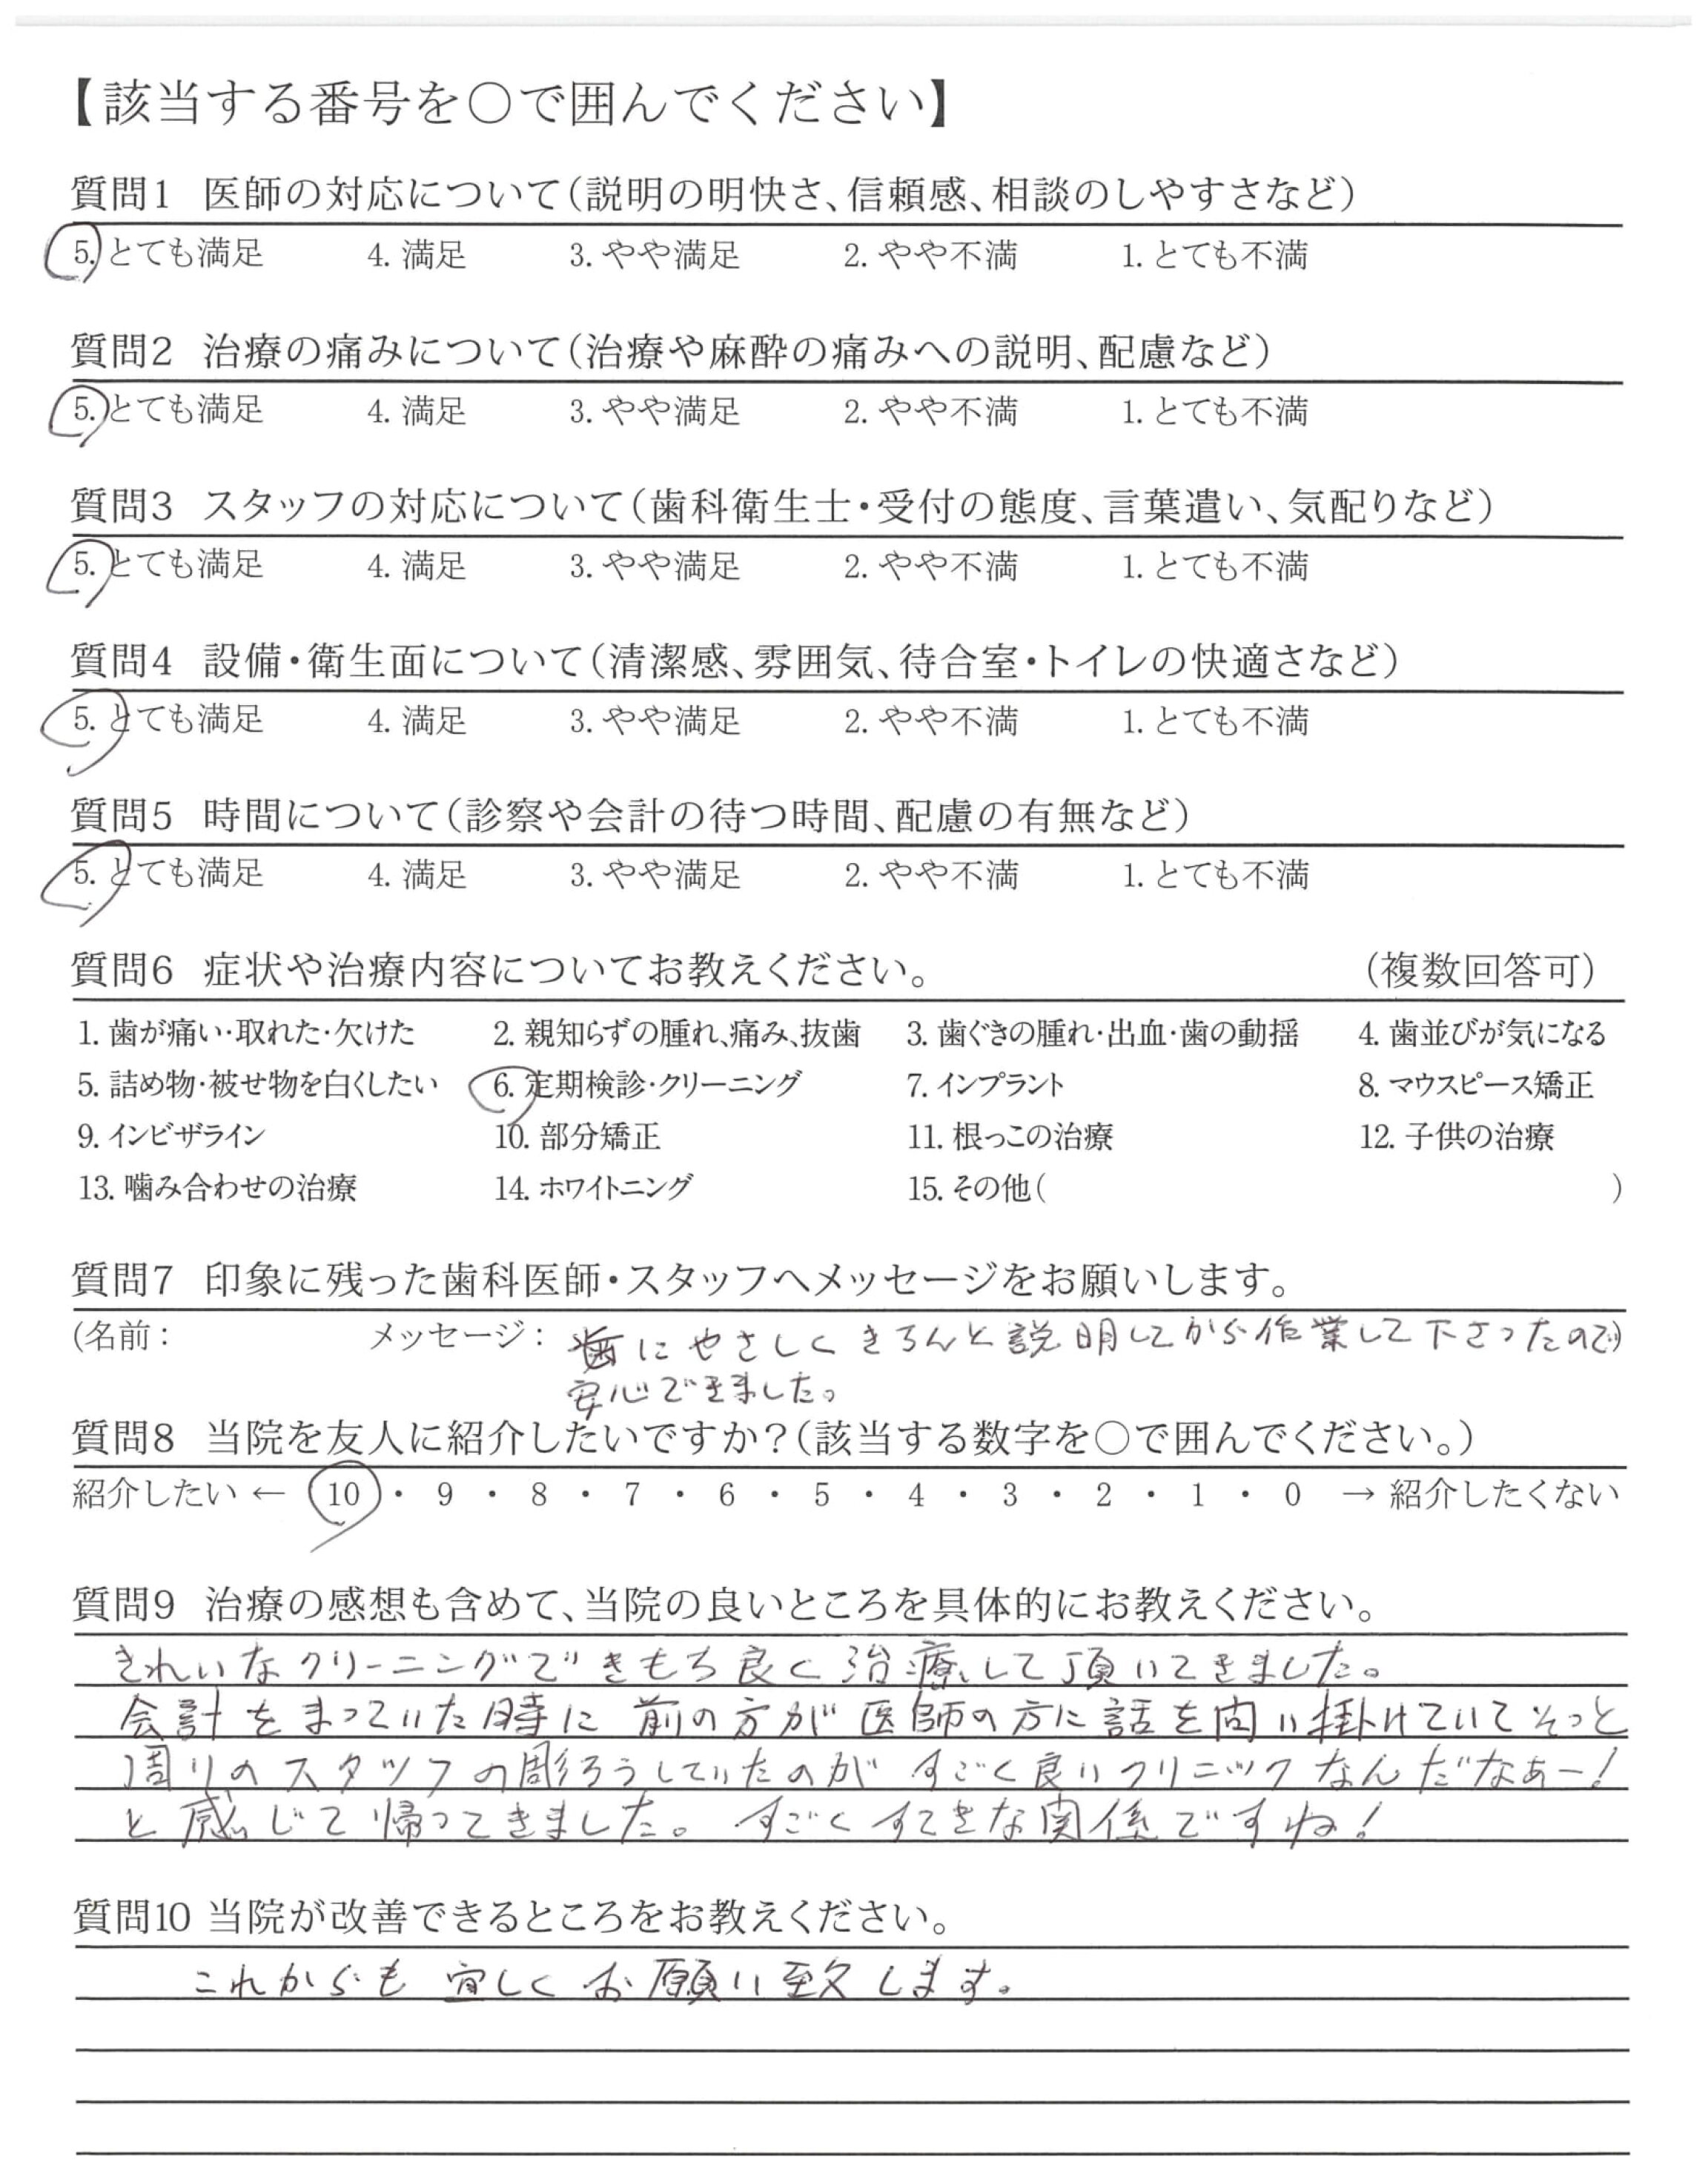 【該当する番号を○で囲んでください】
質問1 医師の対応について(説明の明快さ、信頼感、相談のしやすさなど)
5. とても満足 4. 満足 3. やや満足 2. やや不満 1. とても不満
質問2 治療の痛みについて(治療や麻酔の痛みへの説明、配慮など)
5. とても満足 4. 満足 3. やや満足 2. やや不満 1. とても不満
質問3 スタッフの対応について(歯科衛生士・受付の態度、言葉遣い、気配りなど)
5. とても満足 4. 満足 3. やや満足 2. やや不満 1. とても不満
質問4 設備・衛生面について(清潔感、雰囲気、待合室・トイレの快適さなど)
5. とても満足 4. 満足 3. やや満足 2. やや不満 1. とても不満
質問5 時間について(診察や会計の待つ時間、配慮の有無など)
5. とても満足 4. 満足 3. やや満足 2. やや不満 1. とても不満
質問6 症状や治療内容についてお教えください。 (複数回答可)
1. 歯が痛い・取れた・欠けた 2. 親知らずの腫れ、痛み、抜歯 3. 歯ぐきの腫れ・出血・歯の動揺 4. 歯並びが気になる
5. 詰め物・被せ物を白くしたい 6. 定期検診・クリーニング 7. インプラント 8. マウスピース矯正
9. インビザライン 10. 部分矯正 11. 根っこの治療 12. 子供の治療
13. 噛み合わせの治療 14. ホワイトニング 15. その他( )
質問7 印象に残った歯科医師・スタッフへメッセージをお願いします。
(名前: メッセージ: 歯にやさしくきちんと説明してから作業して下さったので)
安心できました。
質問8 当院を友人に紹介したいですか?(該当する数字を○で囲んでください。)
紹介したい ← 10 ・ 9 ・ 8 ・ 7 ・ 6 ・ 5 ・ 4 ・ 3 ・ 2 ・ 1 ・ 0 → 紹介したくない
質問9 治療の感想も含めて、当院の良いところを具体的にお教えください。
きれいなクリーニングできもち良く治療して頂いてきました。
会計をまっていた時に前の方が医師の方に話を問い掛けていてそっと
周りのスタッフの うしていたのがすごく良いクリニックなんだなあー!
と感じて帰ってきました。すごくすてきな関係ですね!
質問10 当院が改善できるところをお教えください。
これからも宜しくお願い致します。